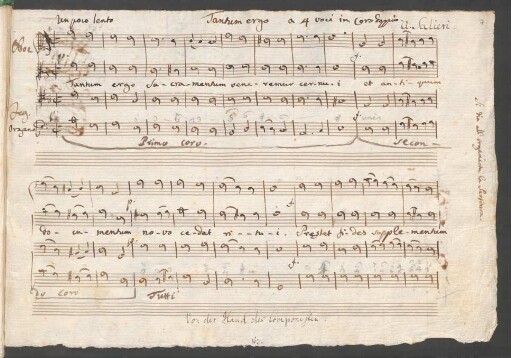 Un poco lento Tantum ergo a 4 voci in Coro doppio A. Salieri.
7
Oboe
Tantum ergo Sa-cra-mentum vene-remur cer-nu-i et an-ti-quum
Organo
Primo coro. Secon-
do-cu-mentum no-vo ce-dat ri-tu-i. Prestet fi-des supple-mentum
do coro Tutti
Von der Hand des Componisten.